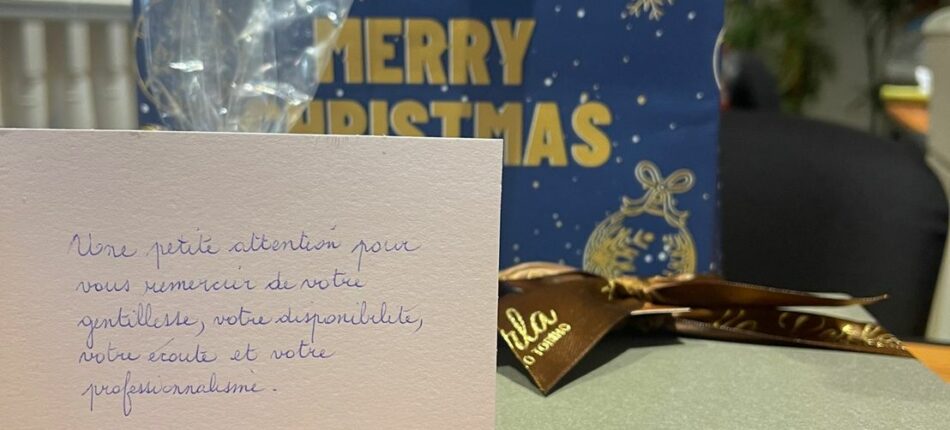 MERRY
CHRISTMAS
Une petite attention pour
vous remercier de votre
gentillesse, votre disponibilité,
votre écoute et votre
professionnalisme.